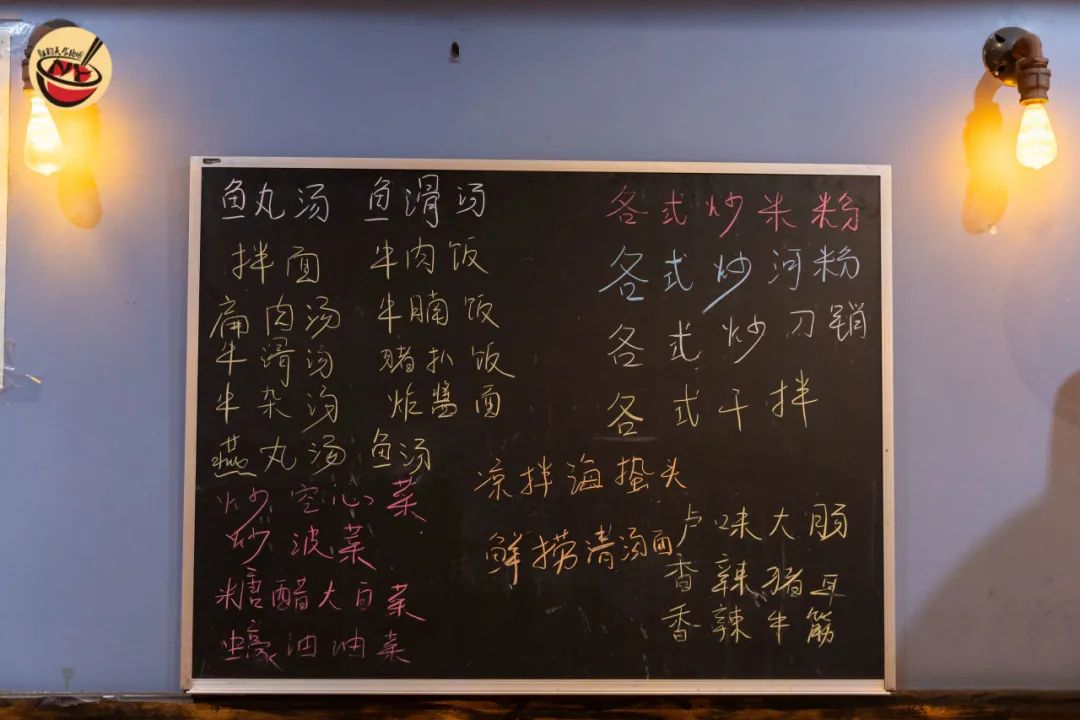 鱼丸汤 鱼滑汤
拌面 牛肉饭
扁肉汤 牛腩饭
牛滑汤 猪扒饭
牛杂汤 炸醬面
燕丸汤 鱼汤
炒空心菜
炒波菜
糖醋大白菜
蠔油油菜
各式炒米粉
各式炒河粉
各式炒刀削
各式干拌
凉拌海蜇头
鲜捞清汤面
卢味大肠
香辣猪耳
香辣牛筋